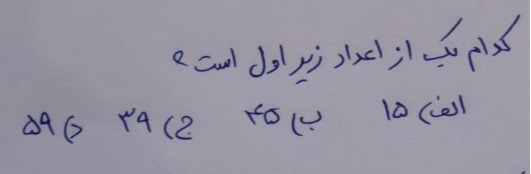 کدام یک از اعداد زیر اول است ؟
الف) ۱۵ ب) ۴۵ ج) ۳۹ د) ۵۹